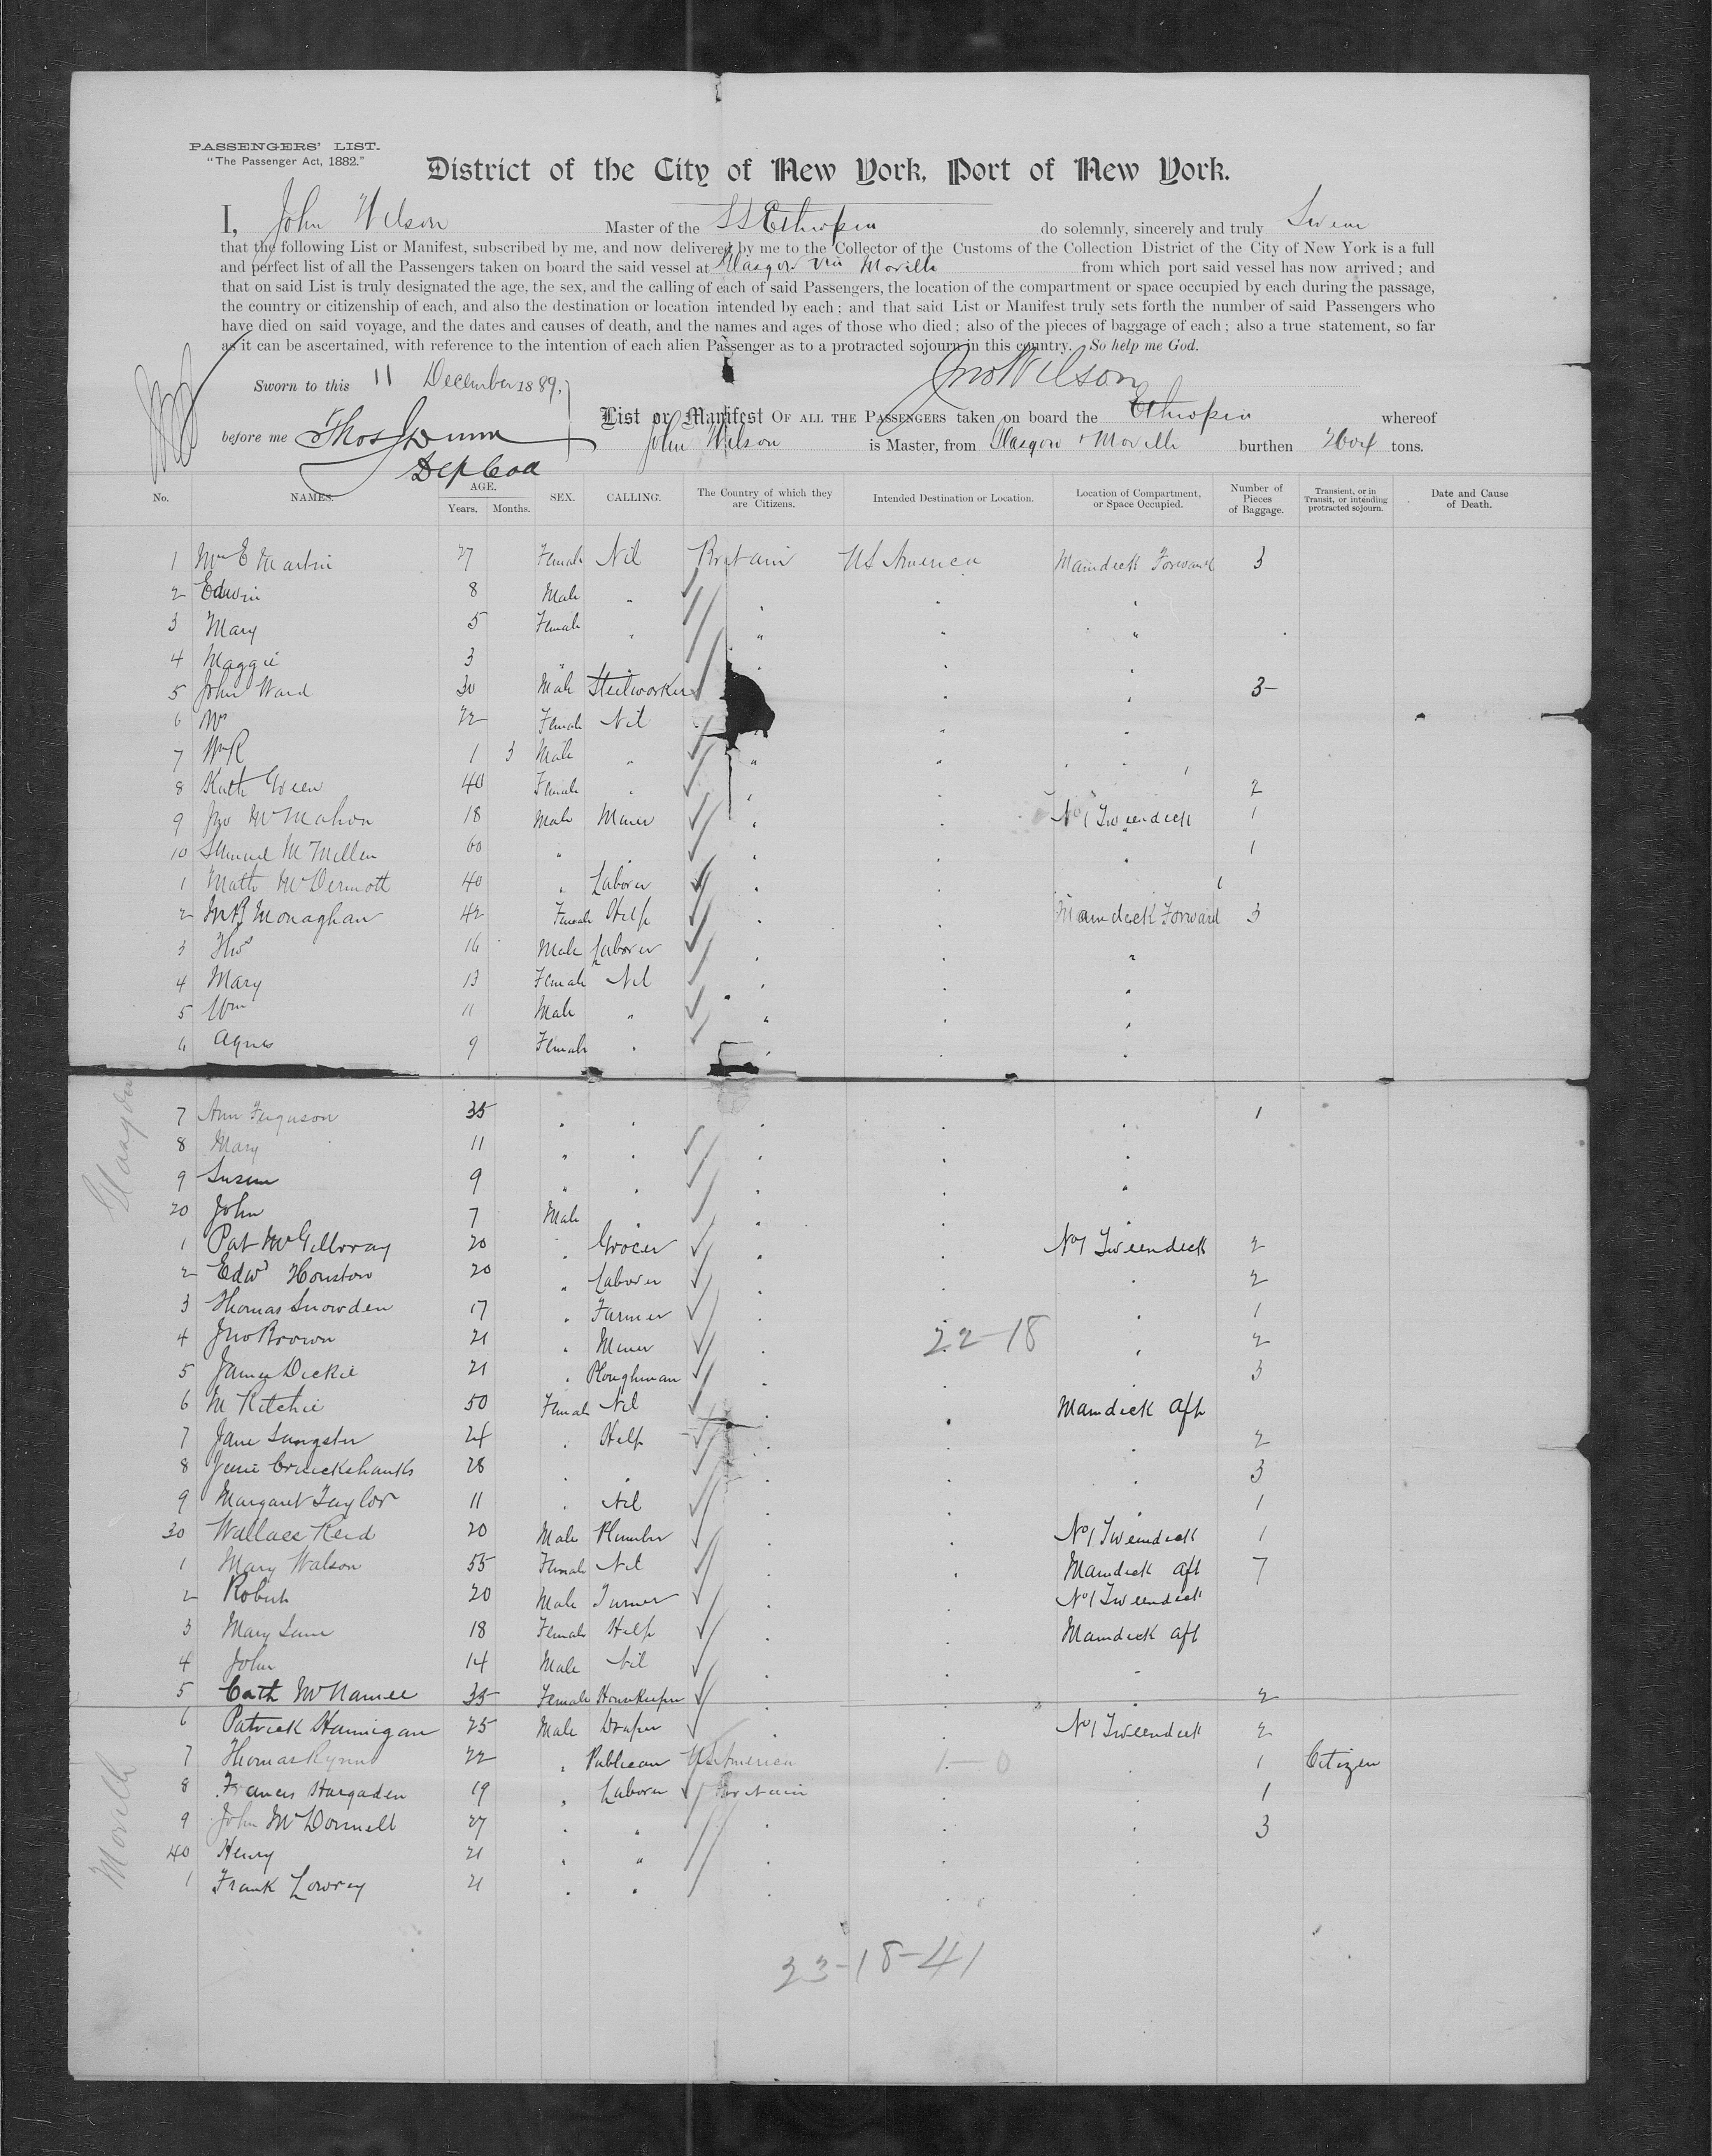 PASSENGERS' LIST.
"The Passenger Act, 1882."
District of the City of New York, Port of New York.
I, John Wilson Master of the SS Ethiopia do solemnly, sincerely and truly Swear
that the following List or Manifest, subscribed by me, and now delivered by me to the Collector of the Customs of the Collection District of the City of New York is a full
and perfect list of all the Passengers taken on board the said vessel at Glasgow via Moville from which port said vessel has now arrived; and
that on said List is truly designated the age, the sex, and the calling of each of said Passengers, the location of the compartment or space occupied by each during the passage,
the country or citizenship of each, and also the destination or location intended by each; and that said List or Manifest truly sets forth the number of said Passengers who
have died on said voyage, and the dates and causes of death, and the names and ages of those who died; also of the pieces of baggage of each; also a true statement, so far
as it can be ascertained, with reference to the intention of each alien Passenger as to a protracted sojourn in this country. So help me God.
Sworn to this 11 December 1889, Jno Wilson
List or Manifest OF ALL THE PASSENGERS taken on board the Ethiopia whereof
before me Thos Dunn John Wilson is Master, from Glasgow & Moville burthen tons.
Dep Coll
No. NAMES. AGE. Years. Months. SEX. CALLING. The Country of which they are Citizens. Intended Destination or Location. Location of Compartment, or Space Occupied. Number of Pieces of Baggage. Transient, or in Transit, or intending protracted sojourn. Date and Cause of Death.
1 Mrs E Martin 27 Female Nil Britain US America Maindeck Forward 3
2 Edwin 8 Male " " " "
3 Mary 5 Female " " " "
4 Maggie 3 " " " "
5 John Ward 30 Male Steelworker " " 3
6 Mrs 22 Female Nil " "
7 Wm R 1 3 Male " " " "
8 Kath Green 40 Female " " " 2
9 Jno McMahon 18 Male Miner " " No 1 Tweendeck 1
10 Samuel McMillen 60 " " " " 1
1 Matth McDermott 40 " Laborer " " 1
2 Monaghan 42 Female Help " " Maindeck Forward 3
3 Thos 16 Male Laborer " " "
4 Mary 13 Female Nil " " "
5 Wm 11 Male " " " "
6 Agnes 9 Female " " " "
Glasgow
7 Ann Ferguson 35 " " " " " 1
8 Mary 11 " " " " "
9 Susan 9 " " " " "
20 John 7 Male " " " "
1 Pat McGillvray 20 " Grocer " " No 1 Tweendeck 2
2 Edwd Houston 20 " Laborer " " " 2
3 Thomas Snowden 17 " Farmer " " " 1
4 Jno Brown 21 " Miner " 22-18 " 2
5 James Dickie 21 " Ploughman " " " 3
6 M Ritchie 50 Female Nil " " Maindeck Aft
7 Jane Sangster 24 " Help " " " 2
8 Jessie Cruickshanks 28 " " " " " 3
9 Margaret Taylor 11 " Nil " " " 1
30 Wallace Reid 20 Male Plumber " " No 1 Tweendeck 1
1 Mary Watson 55 Female Nil " " Maindeck aft 7
2 Robert 20 Male Turner " " No 1 Tweendeck
3 Mary Jane 18 Female Help " " Maindeck aft
4 John 14 Male Nil " " "
5 Cath McNamee 35 Female Housekeeper " " " 2
6 Patrick Hannigan 25 Male Draper " " No 1 Tweendeck 2
Moville
7 Thomas Flynn 22 " Publican US America 1-0 " 1 Citizen
8 Francis Hargaden 19 " Laborer Britain " " 1
9 John McDonnell 27 " " " " " 3
40 Henry 21 " " " " "
1 Frank Lowrey 21 " " " " "
23-18-41